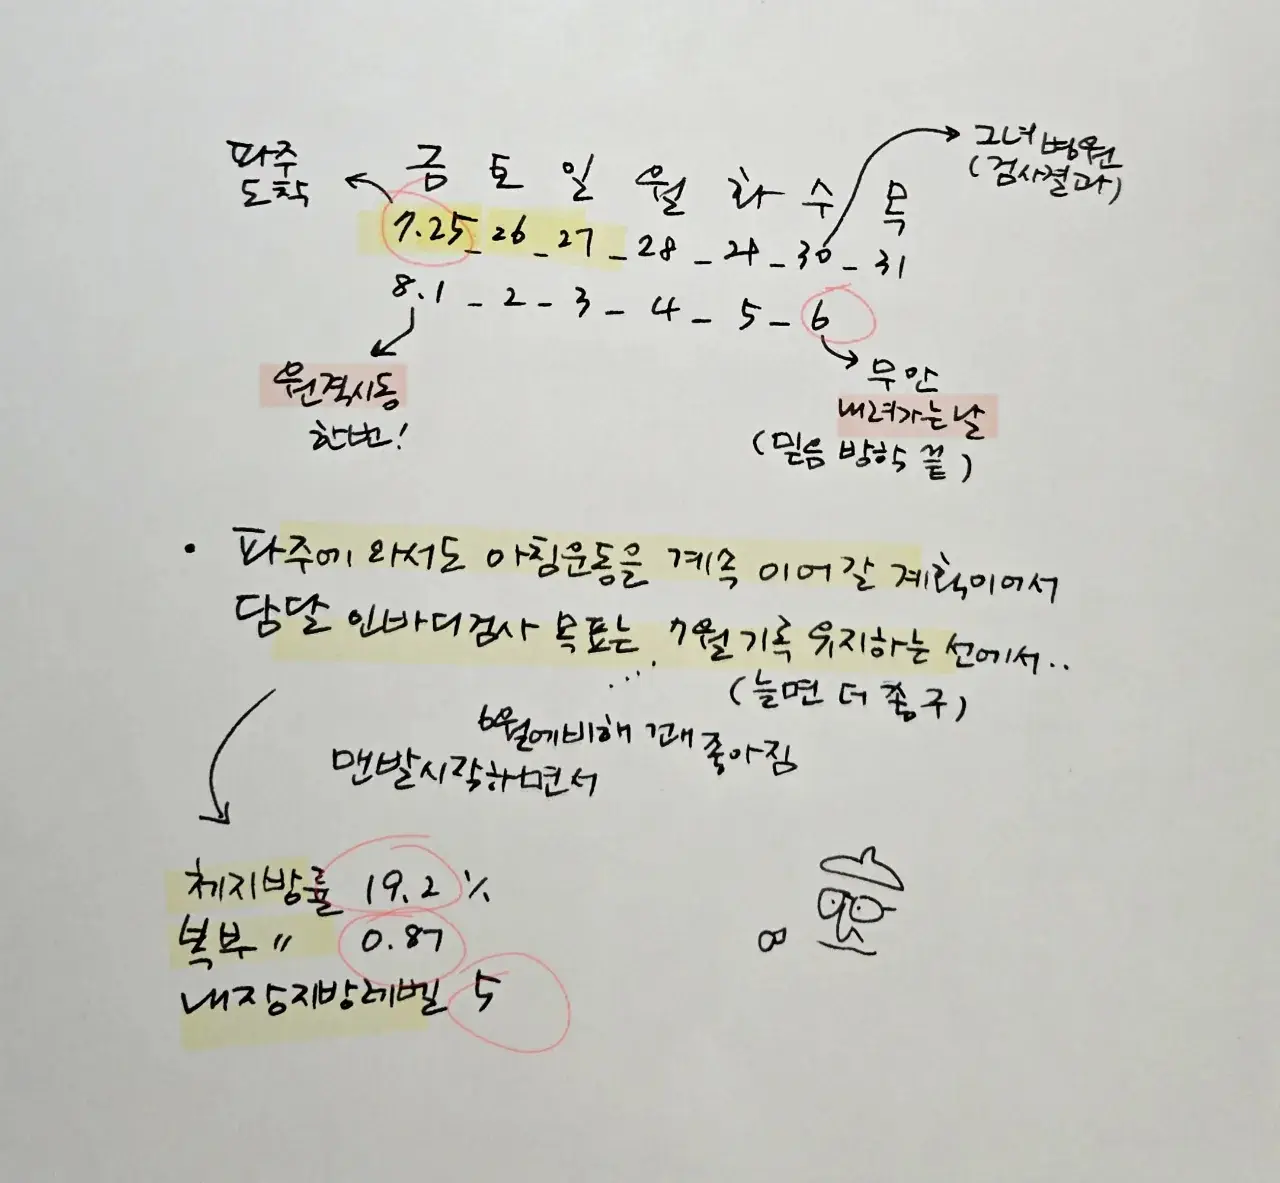 파주
도착
금 토 일 월 화 수 목
그녀 병원
(검사결과)
7.25 - 26 - 27 - 28 - 29 - 30 - 31
8.1 - 2 - 3 - 4 - 5 - 6
원격시동
한번!
무안
내려가는 날
(믿음 방학 끝)
• 파주에 와서도 아침운동을 계속 이어갈 계획이어서
담달 인바디검사 목표는 7월 기록 유지하는 선에서..
(늘면 더 좋구)
6월에비해 꽤 좋아짐
맨발시작하면서
체지방률 19.2 %
복부 〃 0.87
내장지방레벨 5